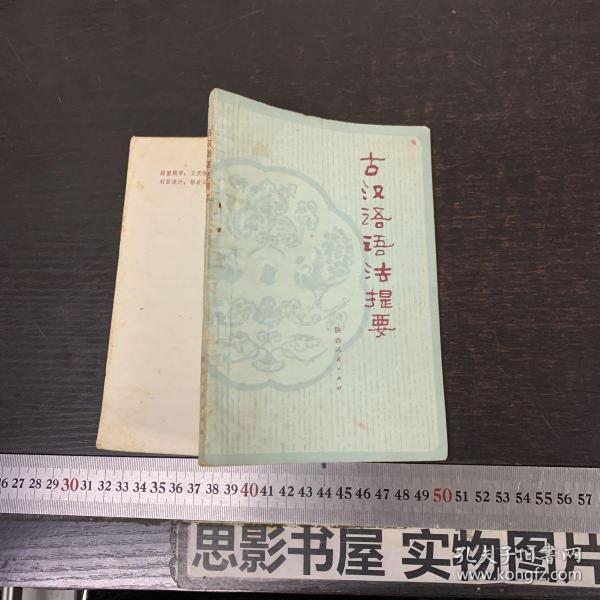 古汉语语法提要
陕西人民出版社
封面题字：
封面设计：
26 27 28 29 30 31 32 33 34 35 36 37 38 39 40 41 42 43 44 45 46 47 48 49 50 51 52 53 54 55 56 57
思影书屋 实物图片
孔夫子旧书网
www.kongfz.com